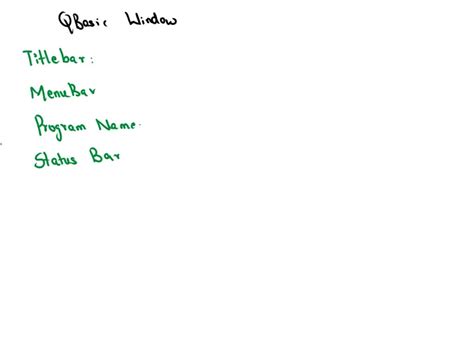 QBasic Window
Titlebar:
MenuBar
Program Name.
Status Bar